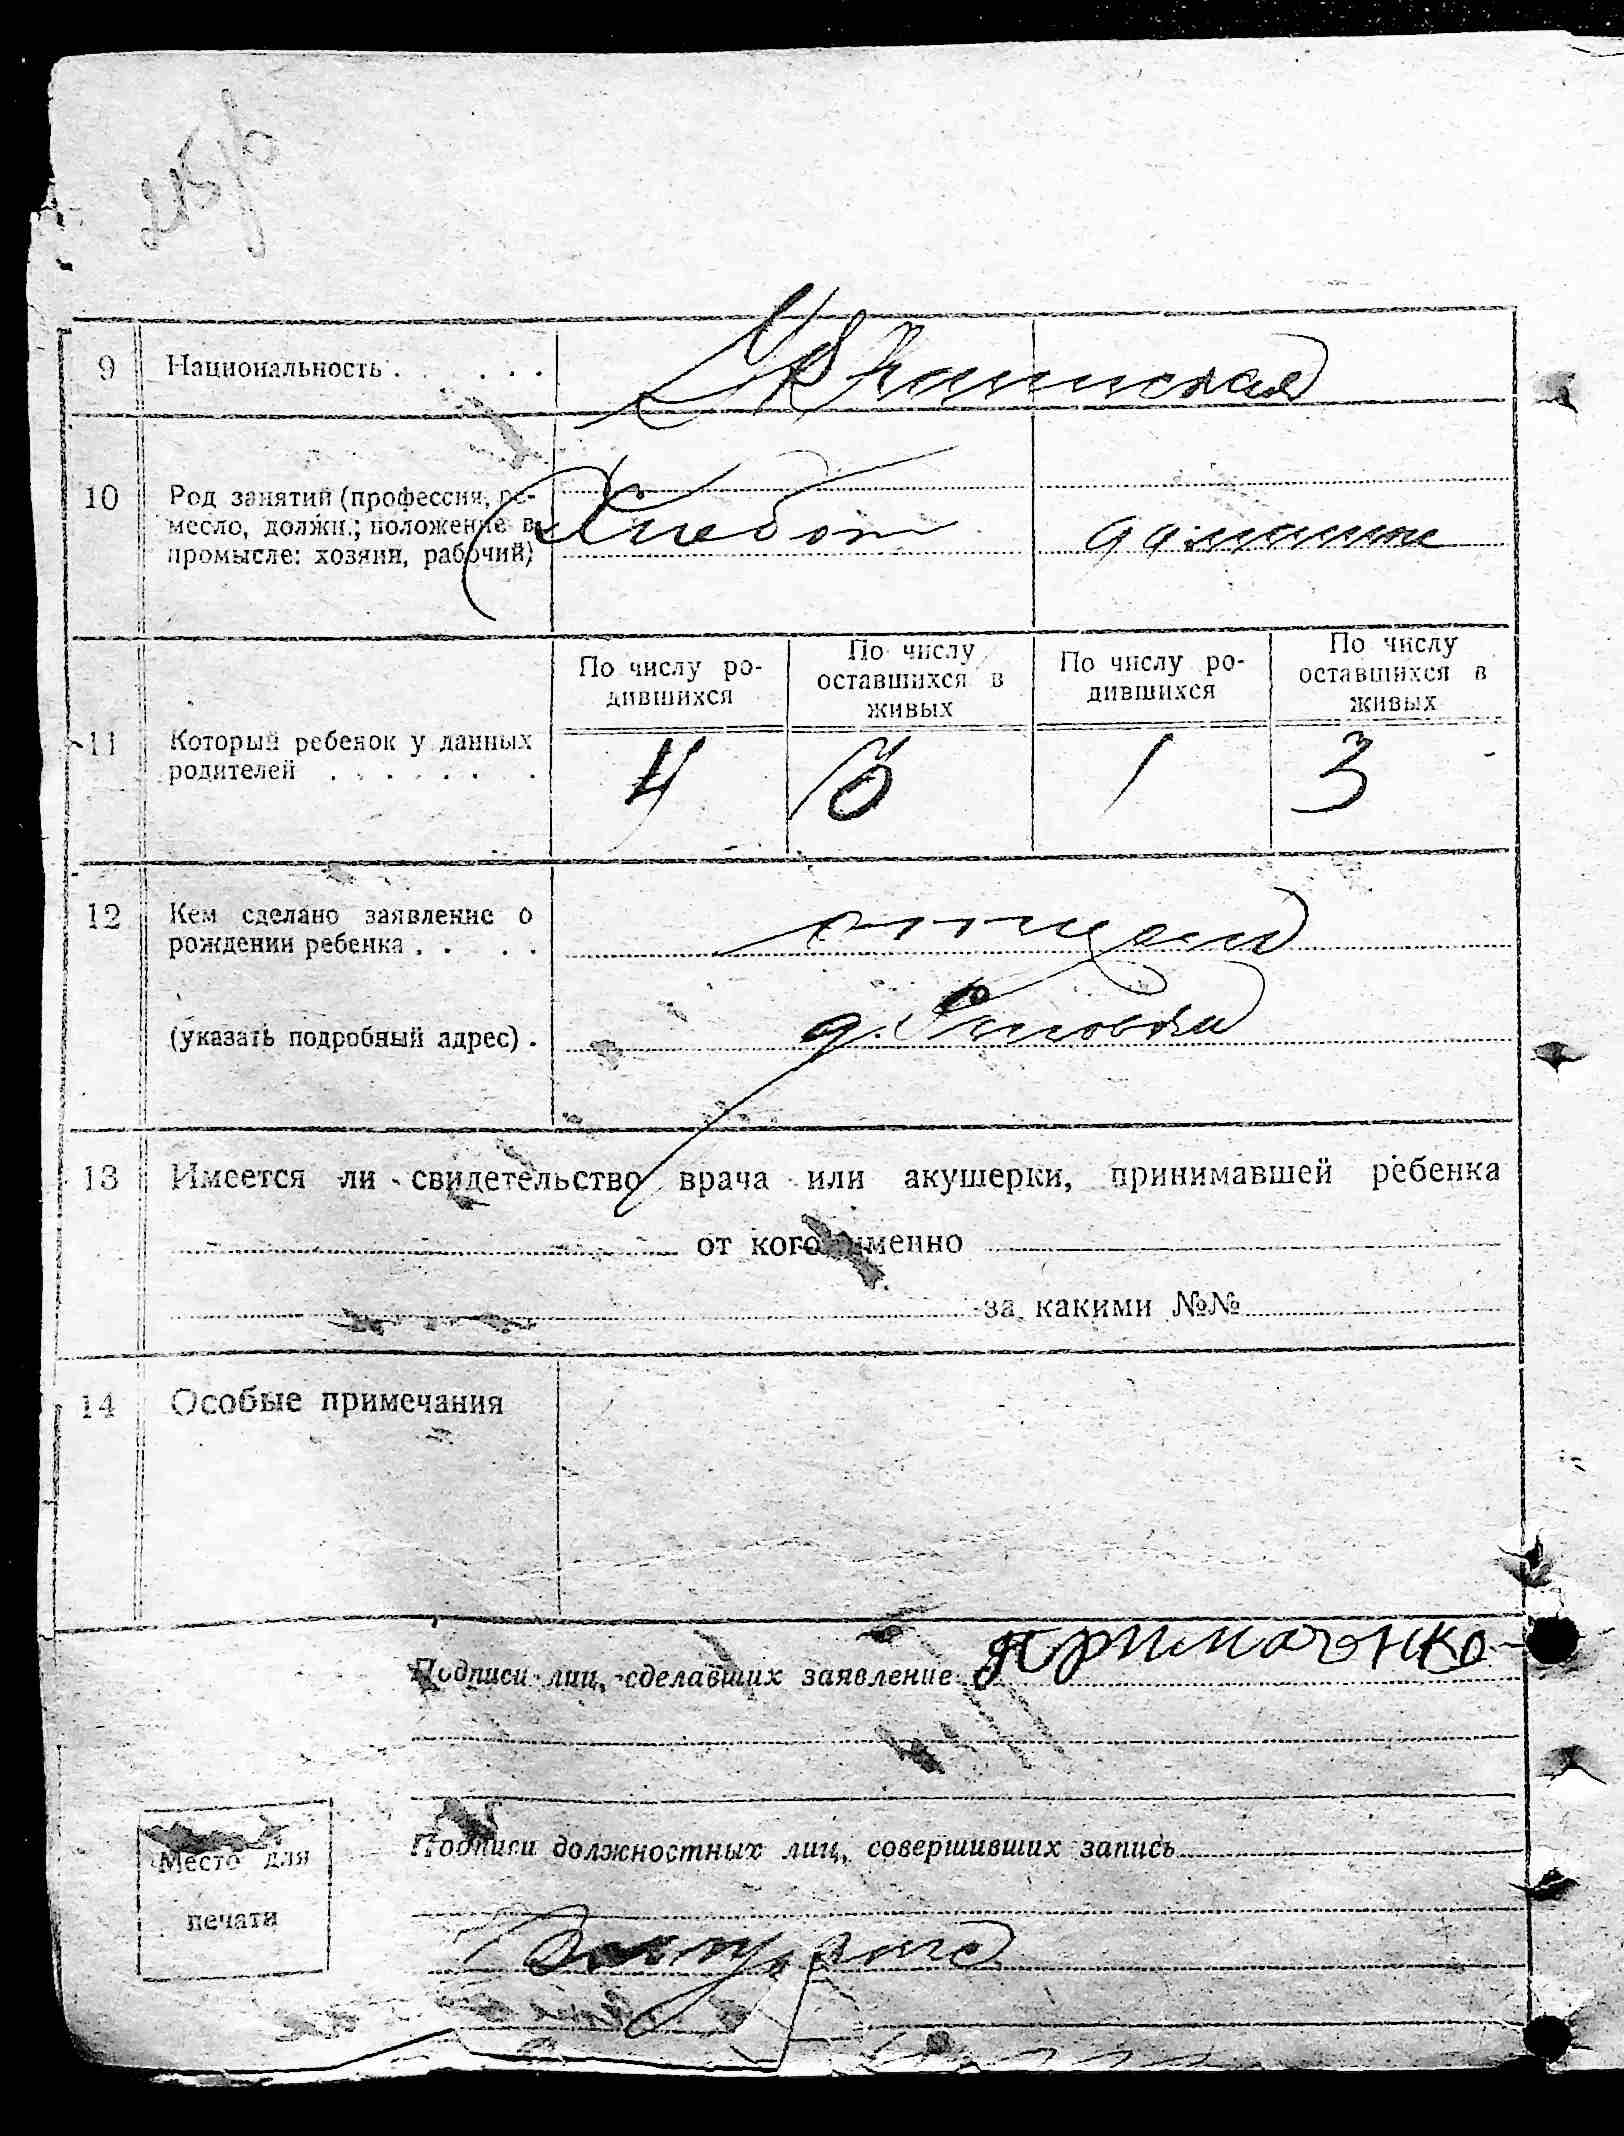 9 Национальность . . . . . Украинская
10 Род занятий (профессия, ре-
месло, должн.; положение в
промысле: хозяин, рабочий)
Хлебоп домашн
По числу ро-
дившихся
По числу
оставшихся в
живых
По числу ро-
дившихся
По числу
оставшихся в
живых
11 Который ребенок у данных
родителей . . . . . . .
4 1 3
12 Кем сделано заявление о
рождении ребенка . . . .
отцем
(указать подробный адрес) .
д.
13 Имеется ли свидетельство врача или акушерки, принимавшей ребенка
от кого именно
за какими №№
14 Особые примечания
Подписи лиц, сделавших заявление Примаченко
Подписи должностных лиц, совершивших запись
Место для
печати